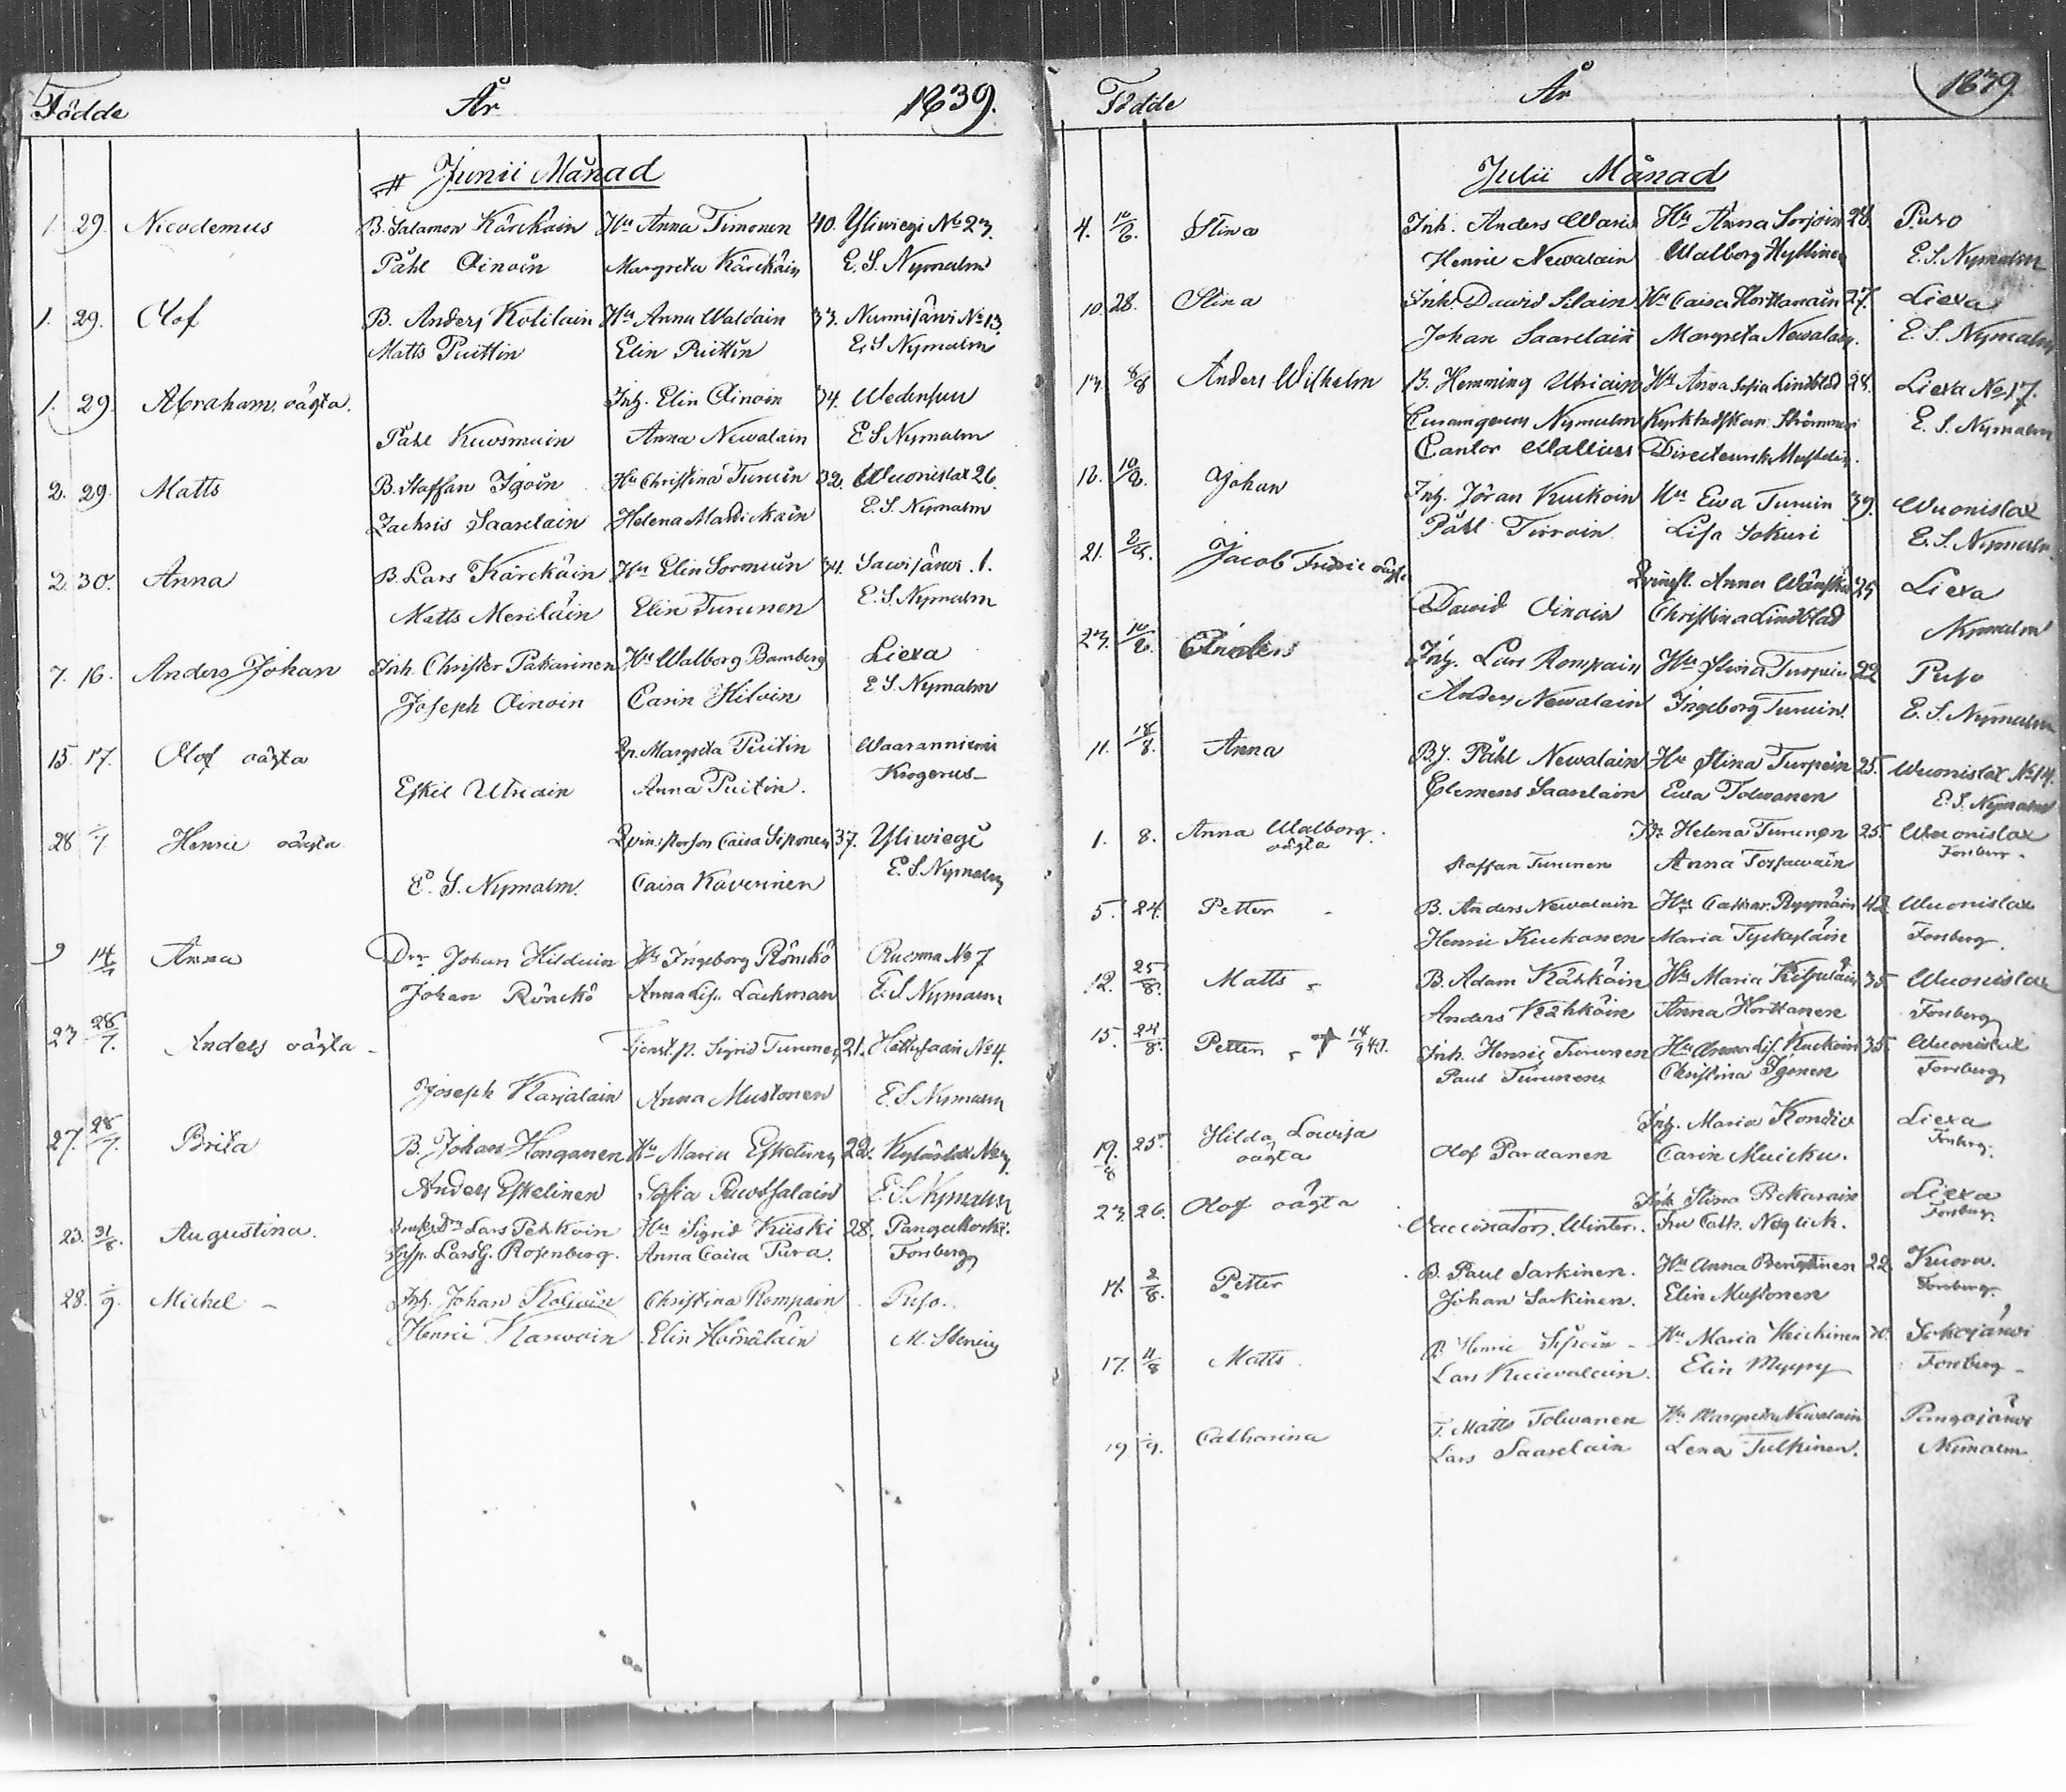 Födde År 1839.
Junii Månad
1. 29. Nicodemus B. Salamon Kärckäin Hu Anna Timonen 40. Yliwiegi No 23.
Påhl Oinoin Margreta Kärckäin E. S. Nymalm
1. 29. Olof B. Anders Kolilain Hu Anna Waldain 33. Nunnijärwi No 13.
Matts Puittin Elin Puittin E. S Nymalm
1. 29. Abraham oägta. Inh. Elin Oinoin 34.
Påhl Kuosmain Anna Newalain E S Nymalm
2. 29. Matts B. Staffan Igoin Hu Christina Turuin 32. Wuonislax 26.
Zachris Saarelain Helena E. S. Nymalm
2 30. Anna B. Lars Kärckäin Hu Elin Sormuin 34. Sawijärwi. 1.
Matts Meriläin Elin Turunen E. S. Nymalm
7. 16. Anders Johan Inh. Christer Pakarinen Hu Walborg Bamberg Liexa
Joseph Oinoin Carin Hiloin E S. Nymalm
15. 17. Olof oägta Margreta Puitin Waaranniemi
Eskil Utriain Anna Puitin. Krogerus
28 /7 Henric oägta Caisa Siponen 37. Yliwiegi
E. S. Nymalm. Caisa Kaverinen E. S. Nymalm
9 14/7 Anna Drr Johan Hilduin Hu Ingeborg Rönkö Ruoma No 7
Johan Rönckö Anna Lisa Lackman E. S Nymalm
23 28/7. Anders oägta Tjenst. p. Sigrid Turunen 21. Hattusaari No 4.
Joseph Karjalain Anna Mustonen E. S. Nymalm
27. 28/7. Brita B. Johan Honganen Hu Maria Eskelinen 22. Kylänlax
Anders Eskelinen Sofia Ruotsalain E. S. Nymalm
23. 31/8. Augustina. Lars Pehkoin Hu Sigrid Kiiski 28. Pangakoski.
Insp. Lars G. Rosenberg. Anna Caisa Pura. Forsberg
28. /9. Michel Inh. Johan Christina Rompain Puso.
Henric Karwoin Elin Hömäläin M. Stenius
Födde År 1839
Julii Månad
4. 10/8. Stina Inh. Anders Waris Hu Anna Sorjoin 28. Puso
Henric Newalain Walborg Hyttinen E. S. Nymalm
10. 28. Stina Inh. Dawid Silain Hu Caisa Horttanain 27. Liexa
Johan Saarelain Margreta Newalain. E. S. Nymalm
13. 8/8 Anders Wilhelm B. Hemming Utriain Hu Anna Sofia Lindblad 28. Liexa No 17.
Nymalm E. S. Nymalm
Cantor Wallius
10/8. Johan Inh. Jöran Kuckoin Hu Ewa Turuin 39. Wuonislax
Påhl Tirroin Lisa Sokuri E. S. Nymalm
21. Jacob Fredric oägta Anna 25 Liexa
Dawid Oinoin Christina Lindblad Nymalm
23. 10/8. Anders Inh. Lars Rompain Hu Stina Turpein 22 Puso
Anders Newalain Ingeborg Turuin. E. S. Nymalm
11. 18/8. Anna B. Påhl Newalain Hu Stina Turpein 25. Wuonislax No 14.
Clemens Saarelain Ewa Tolwanen E. S. Nymalm
1. 8. Anna Walborg. Helena Turunen 25. Wuonislax
oägta Staffan Turunen Anna Forsberg
5. 24. Petter B. Anders Newalain Hu Cathar. Ryynäin 42 Wuonislax
Henric Kuckanen Maria Tyckyläin Forsberg.
12. 25/8. Matts B. Adam Kähköin Hu Maria 35. Wuonislax
Anders Kähköin Anna Horttanen Forsberg
15. 24/8. Petter † 14/9 41. Inh. Henric Turunen Hu Anna Lis. Kuckoin 35. Wuonislax
Paul Turunen Christina Igonen Forsberg
19/8 25. Hilda Lowisa Inh. Maria Liexa
oägta Olof Pardanen Carin Muicku. Forsberg.
23. 26. Olof oägta Inh. Stina Liexa
Vaccinatorn Winter. Fru Cath. Neglick. Forsberg.
14. 2/8. Petter B. Paul Sarkinen. Hu Anna 22 Kuora.
Johan Sarkinen. Elin Mustonen Forsberg.
17. 11/8 Matts B. Henric Hu Maria Heickinen 30. Sokojärwi
Lars Kuiwalain. Elin Myyry Forsberg
19 /9. Catharina T. Matts Tolwanen Hu Margreta Newalain Pangajärwi
Lars Saarelain Lena Tulkinen. Nymalm